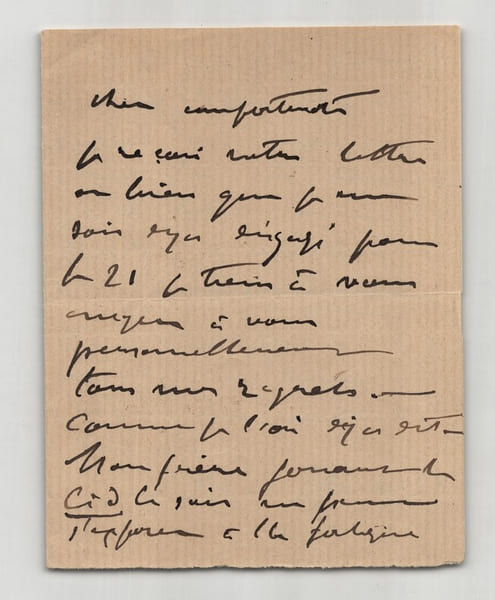 cher
je reçois votre lettre
bien que je me
sois deja engagé pour
le 21 je tiens à vous
à vous
personnellement
tous mes regrets.—
Comme je l'ai deja dit—
Mon frère jouant le
Cid le soir ne peut
s'exposer à la fatigue